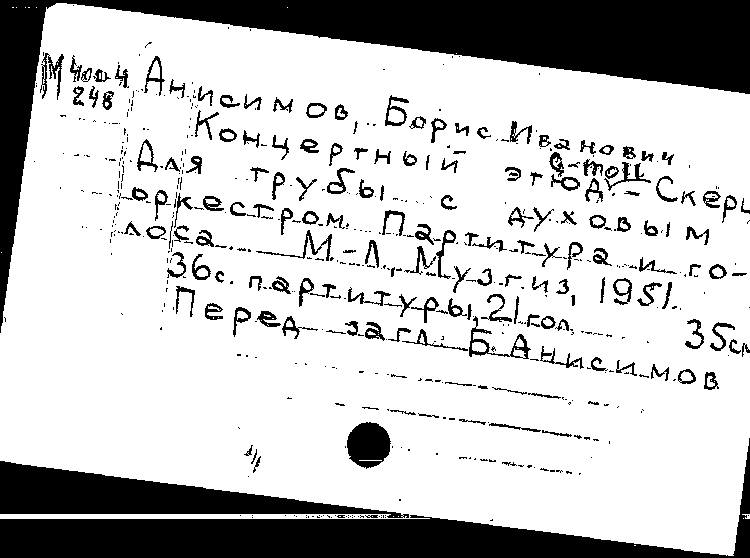 М 400-4
248
Анисимов, Борис Иванович
Концертный этюд - Скерц
g-moll
Для трубы с духовым
оркестром. Партитура и го-
лоса. М-Л, Музгиз, 1951.
36с. партитуры, 21 гол. 35см
Перед загл: Б. Анисимов